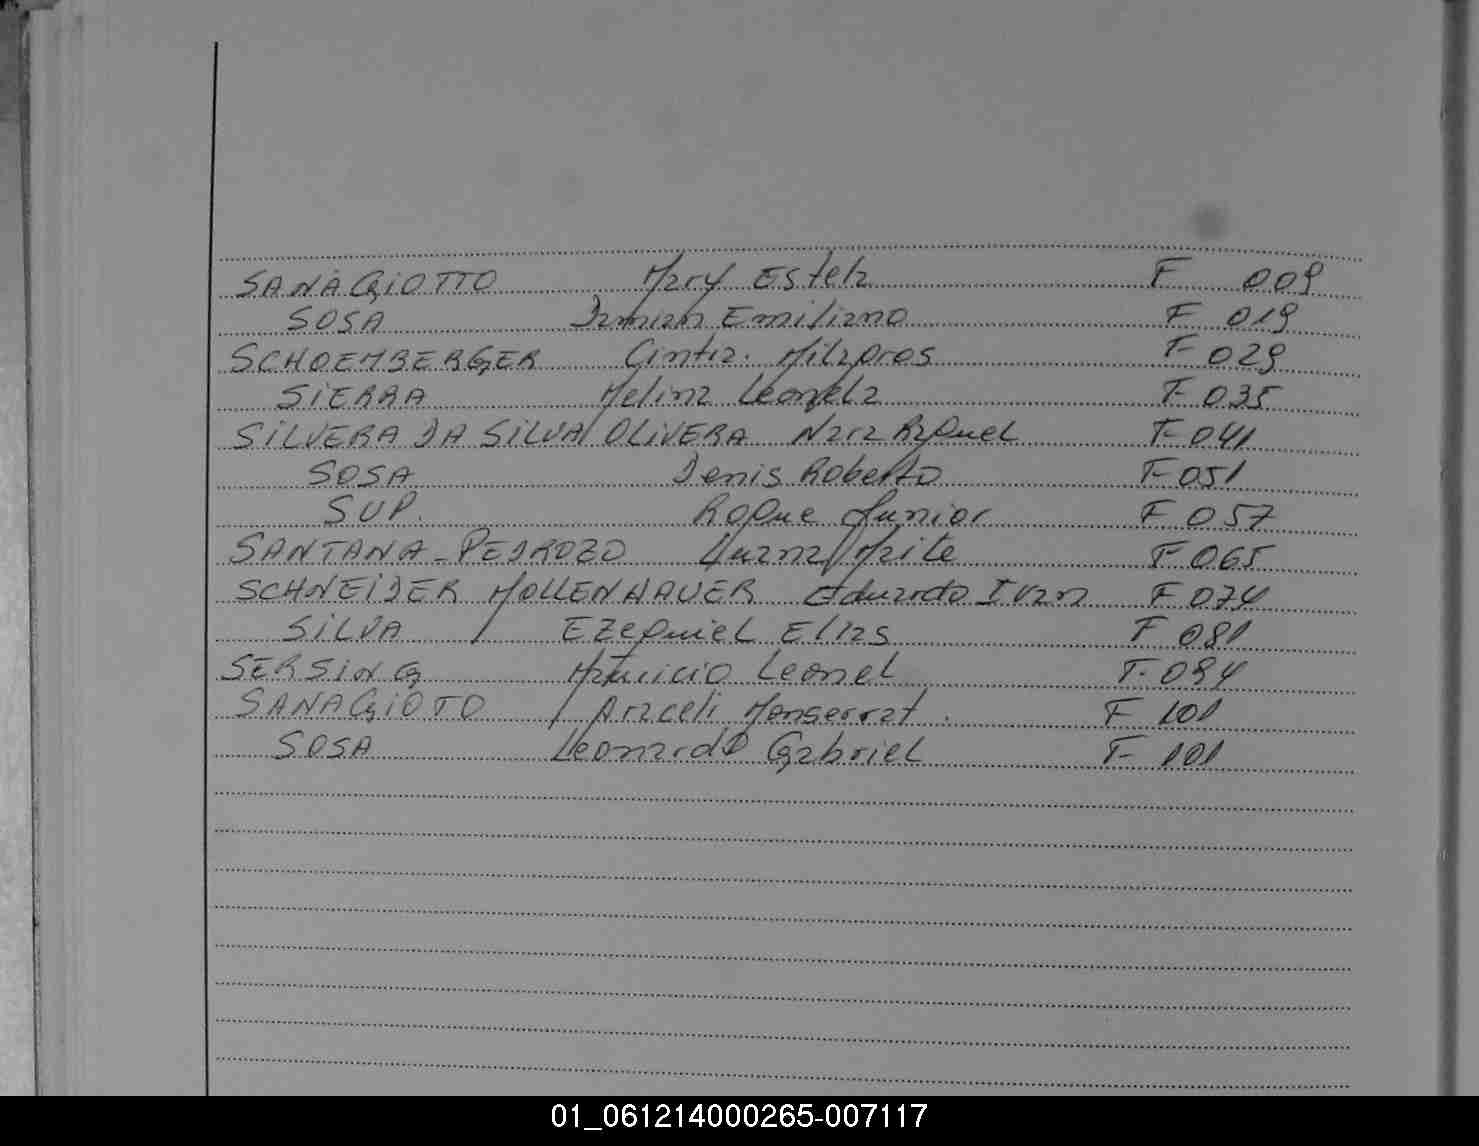 SANAGIOTTO Mary Estela F 009
SOSA Damian Emiliano F 019
SCHOEMBERGER Cintia Milagros F 029
SIERRA Melina Leonela F 035
SILVERA DA SILVA OLIVERA Nara Raquel F 041
SOSA Denis Roberto F 051
SUP. Roque Junior F 057
SANTANA-PEDROZO Luana Maite F 065
SCHNEIDER MOLLENHAUER Eduardo Ivan F 074
SILVA Ezequiel Elias F 081
SERSING Mauricio Leonel F. 094
SANAGIOTO Araceli Monserrat. F 101
SOSA Leonardo Gabriel F 101
01_061214000265-007117